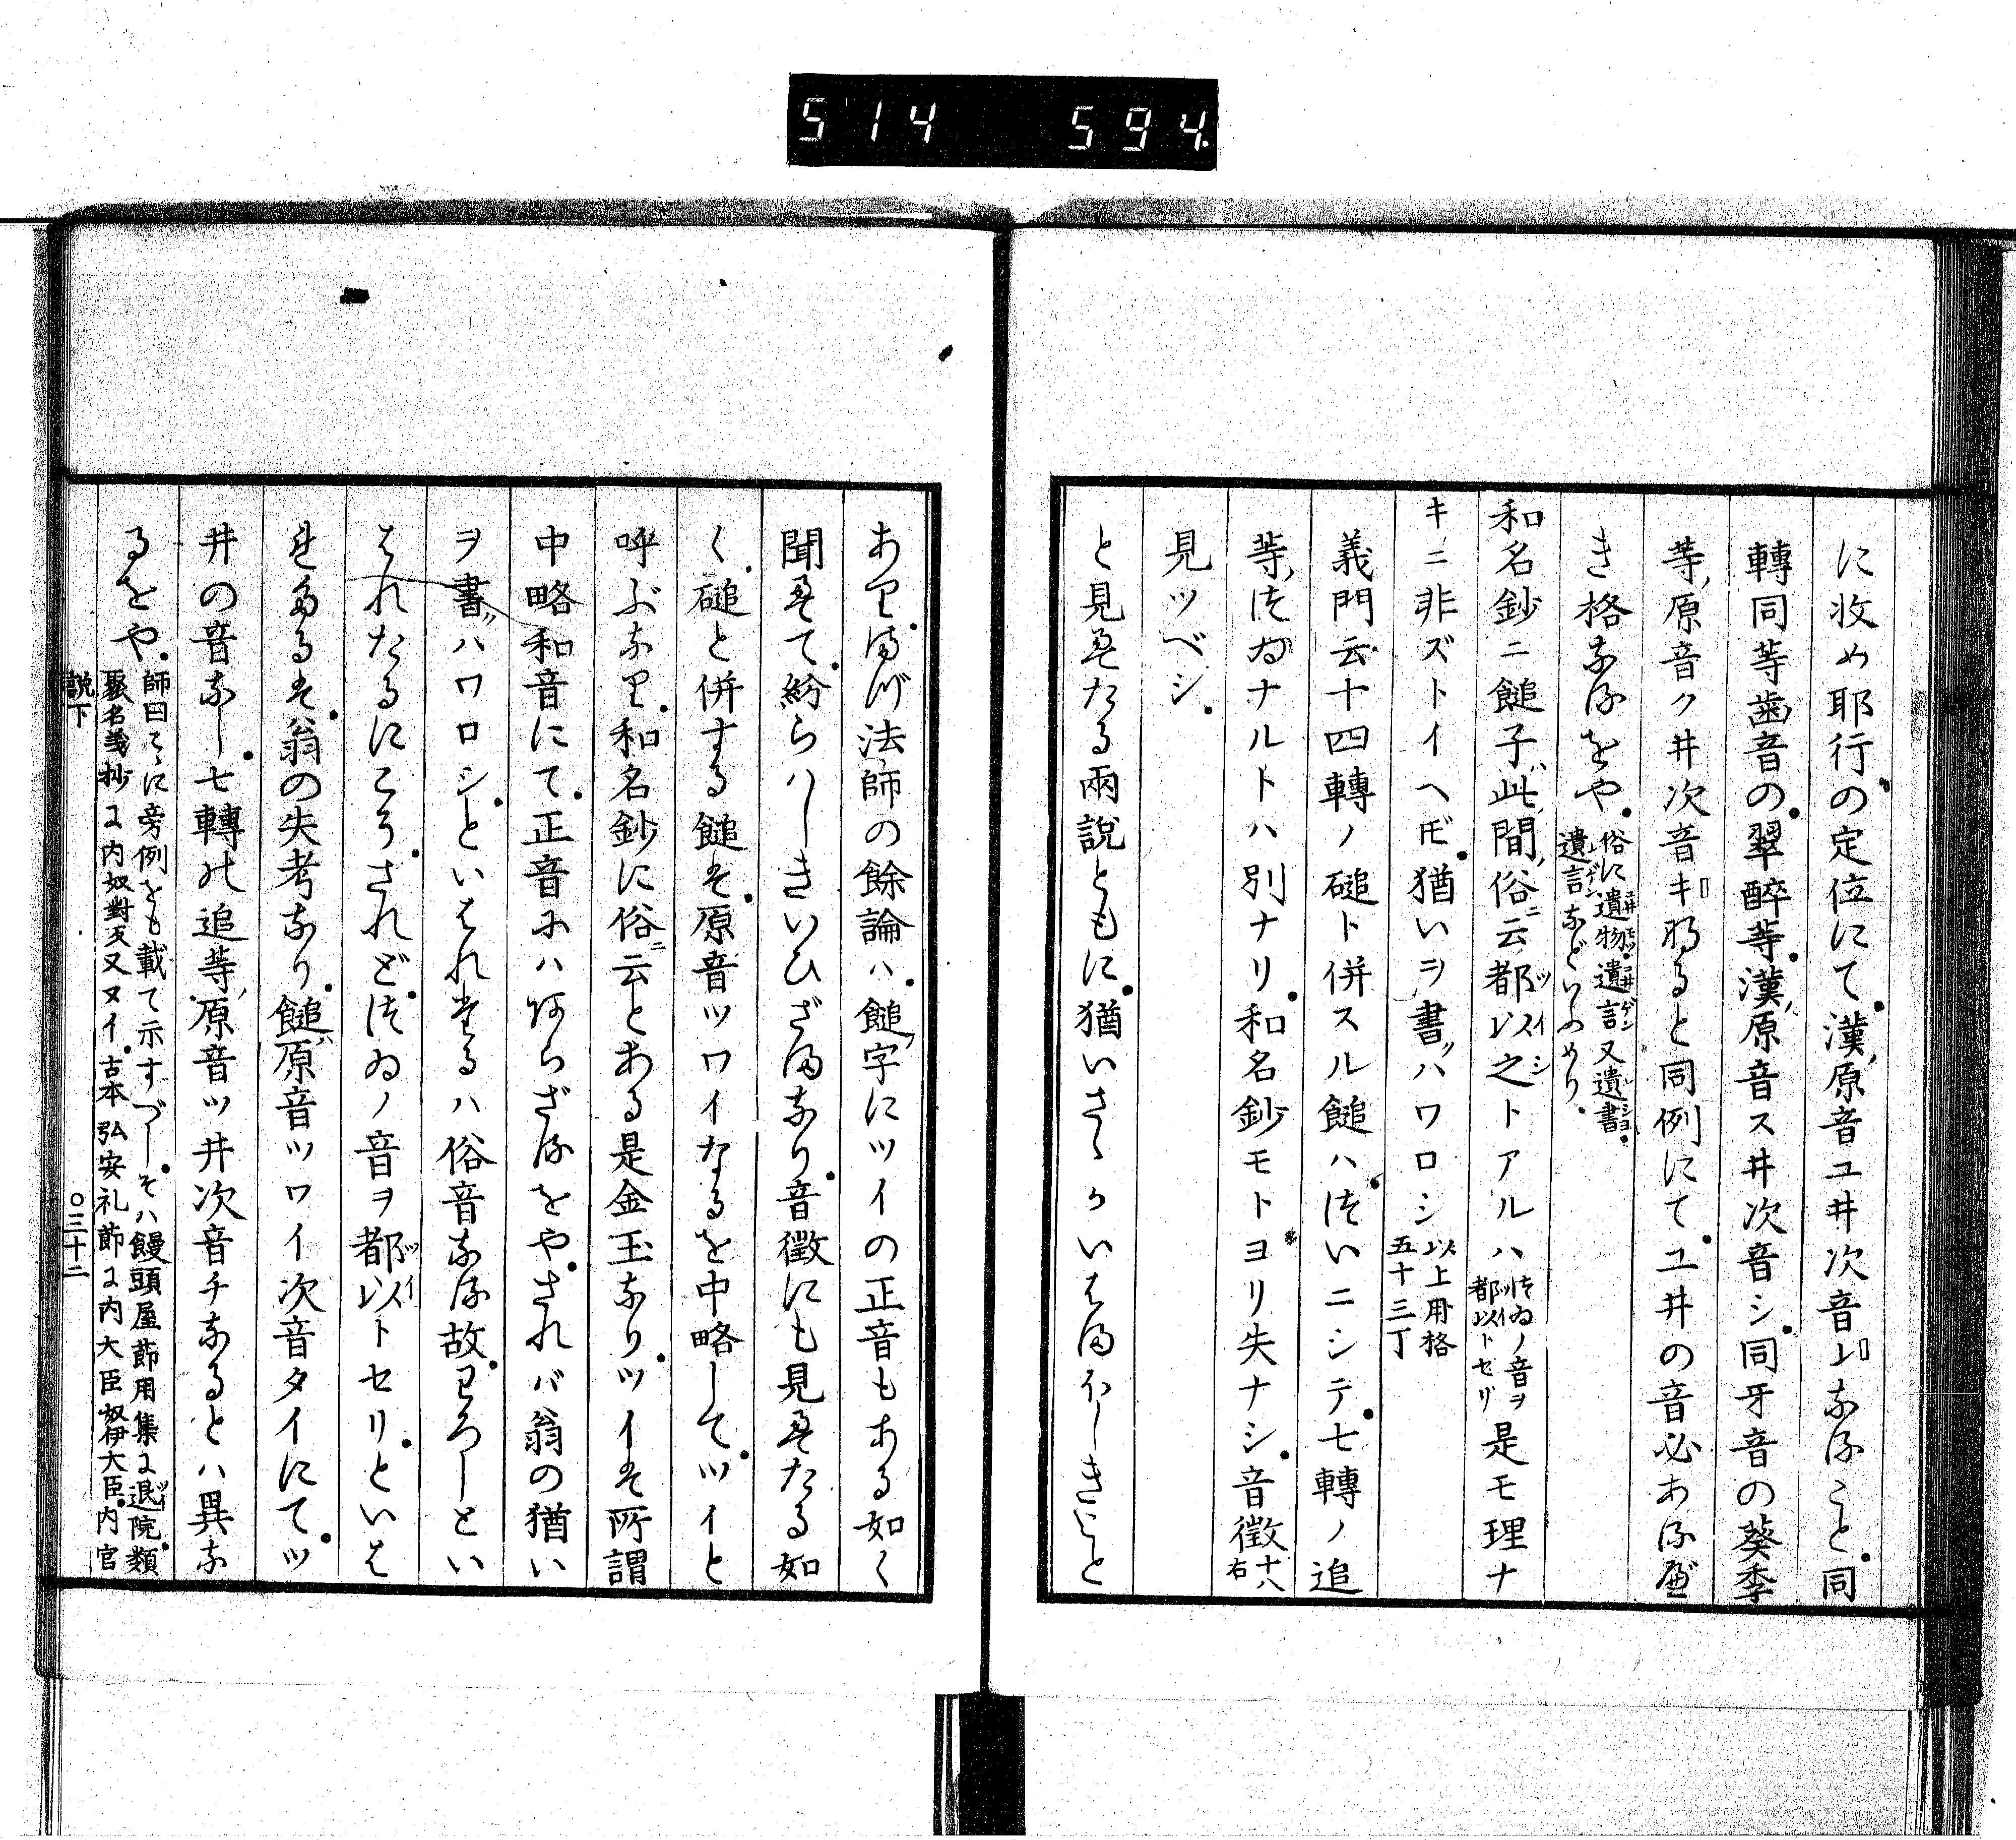 514 594.
に收め耶行の定位にて漢ノ原音ユ井次音なること同
轉同等歯音の翠醉等漢ノ原音ス井次音シ同牙音の葵季
等ノ原音ク井次音キなると同例にてユ井の音必あるべ
き格なるをや俗に遺物遺言又遺書
遺言などいふめり
和名鈔ニ鎚子此間俗ニ云都以之トアルハつゐノ音ヲ
都以トセリ是モ理ナ
キニ非ズトイヘドモ猶いヲ書ハワロシ以上用格
五十三丁
義門云十四轉ノ磓ト併スル鎚ハついニシテ七轉ノ追
等ノつゐナルトハ別ナリ和名鈔モトヨリ失ナシ音徵十八
右
見ツベシ
と見えたる兩說ともに猶いさゝかいはまほしきこと
あり まづ法師の餘論ハ鎚ノ字にツイの正音もある如く
聞えて紛らハしきいひざまなり音徵にも見えたる如
く磓と併する鎚は原音ツワイなるを中略してツイと
呼ぶなり和名鈔に俗ニ云とある是金玉なりツイは所謂
中略和音にて正音にハあらざるをやされバ翁の猶い
ヲ書ハワロシといはれたるハ俗音なる故わろしとい
はれたるにこそされどつゐノ音ヲ都以トセリといは
れたるは翁の失考なり鎚ハ原音ツワイ次音タイにてツ
井の音なし七轉の追等ノ原音ツ井次音チなるとハ異な
るをや師曰こゝに旁例をも載て示すべしそハ饅頭屋節用集に退院類
聚名義抄に内奴對反又ヌイ古本弘安礼節に内大臣奴伊大臣内官
說下
〇三十二